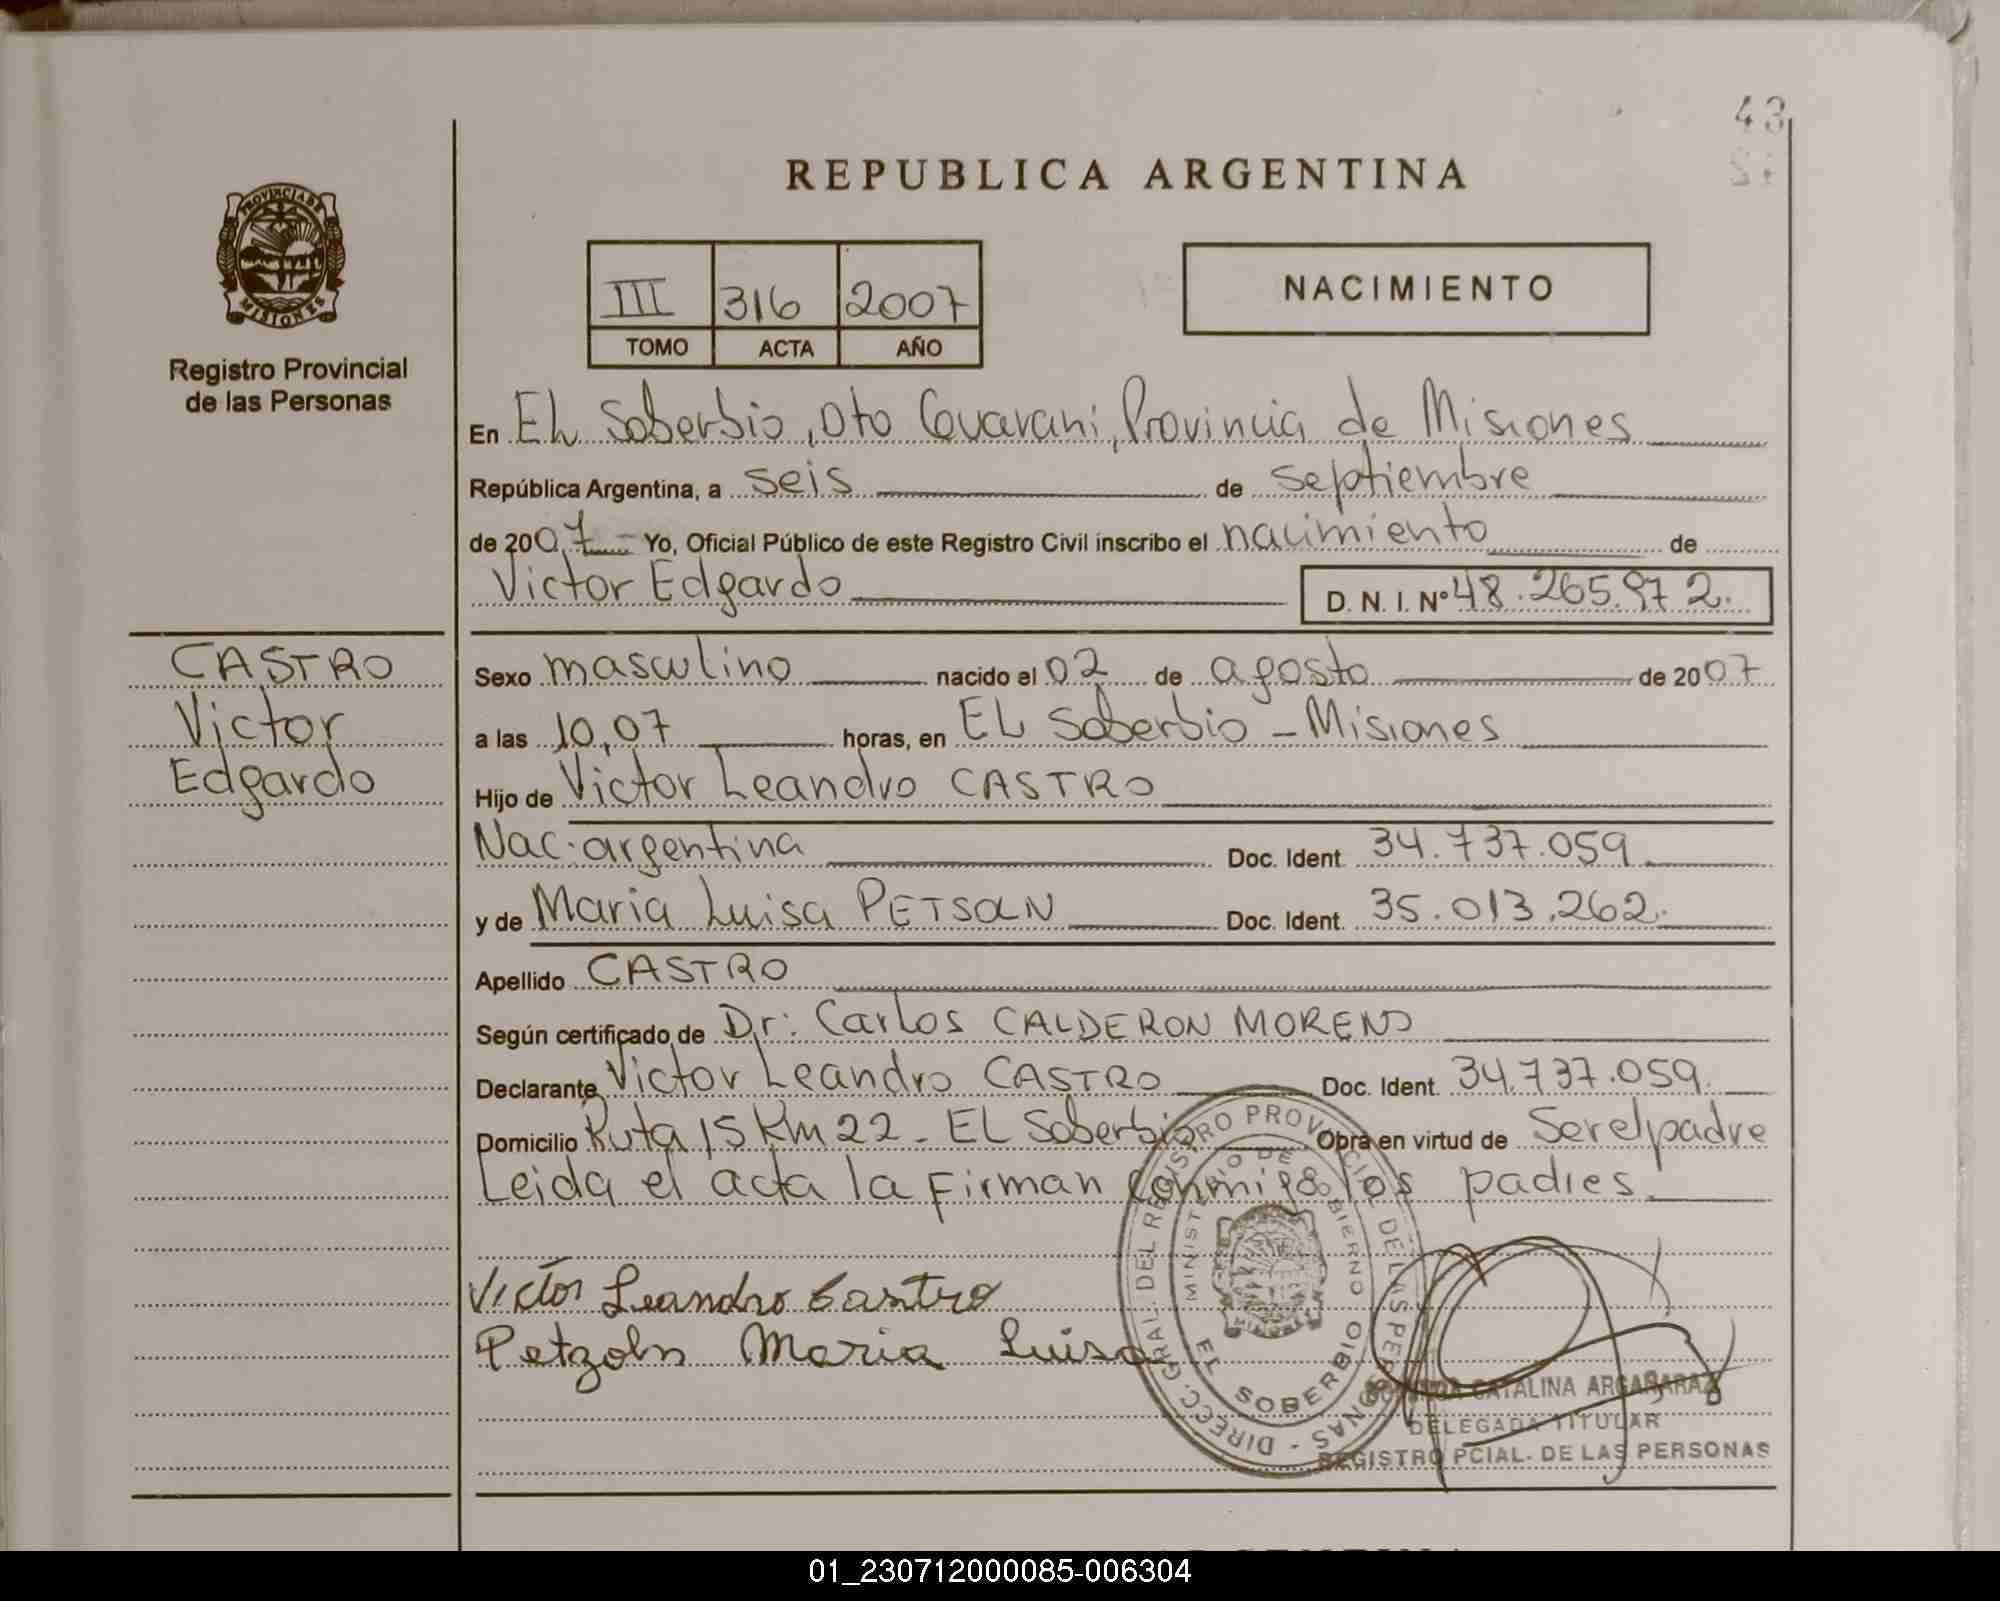 43
REPUBLICA ARGENTINA
PROVINCIA DE
MISIONES
Registro Provincial
de las Personas
III 316 2007
TOMO ACTA AÑO
NACIMIENTO
En EL Soberbio, Dto Guarani, Provincia de Misiones
República Argentina, a seis de septiembre
de 2007 Yo, Oficial Público de este Registro Civil inscribo el nacimiento de
Victor Edgardo D. N. I. Nº 48.265.972.
CASTRO
Victor
Edgardo
Sexo masculino nacido el 02 de agosto de 2007
a las 10,07 horas, en EL Soberbio - Misiones
Hijo de Victor Leandro CASTRO
Nac. argentina Doc. Ident. 34.737.059
y de Maria Luisa PETSOLN Doc. Ident. 35.013.262.
Apellido CASTRO
Según certificado de Dr: Carlos CALDERON MORENO
Declarante Victor Leandro CASTRO Doc. Ident. 34.737.059.
Domicilio Ruta 15 Km 22 - EL Soberbio Obra en virtud de Ser el padre
Leida el acta la Firman conmigo los padres.
Victor Leandro Castro
Petzoln Maria Luisa
DIRECC. GRAL. DEL REGISTRO PROVINCIAL DE LAS PERSONAS
MINISTERIO DE GOBIERNO
EL SOBERBIO
CATALINA ARGAÑARAZ
DELEGADA TITULAR
REGISTRO PCIAL. DE LAS PERSONAS
01_230712000085-006304